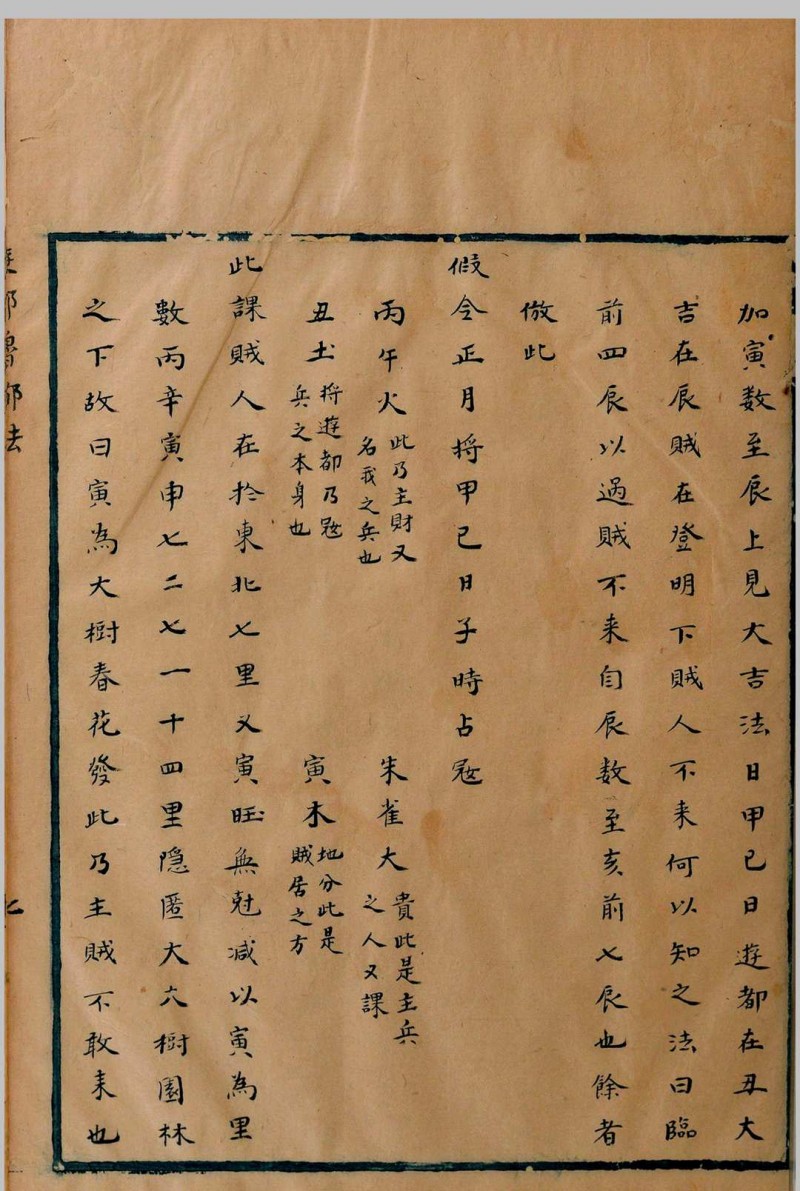 加寅数至辰上見大吉法日甲己日遊都在丑大
吉在辰賊在登明下賊人不来何以知之法曰臨
前四辰以過賊不来自辰数至亥前七辰也餘者
倣此
假令正月将甲己日子時占冦
丙午火 此乃主財又
名我之兵也
朱雀火 貴此是主兵
之人又課
丑土 将遊都乃冦
兵之本身也
寅木 地分此是
賊居之方
此課賊人在於東北七里又寅旺無尅减以寅為里
數丙辛寅申七二七一十四里隐匿大六樹園林
之下故曰寅為大樹春花發此乃主賊不敢来也
遊都魯都法
七